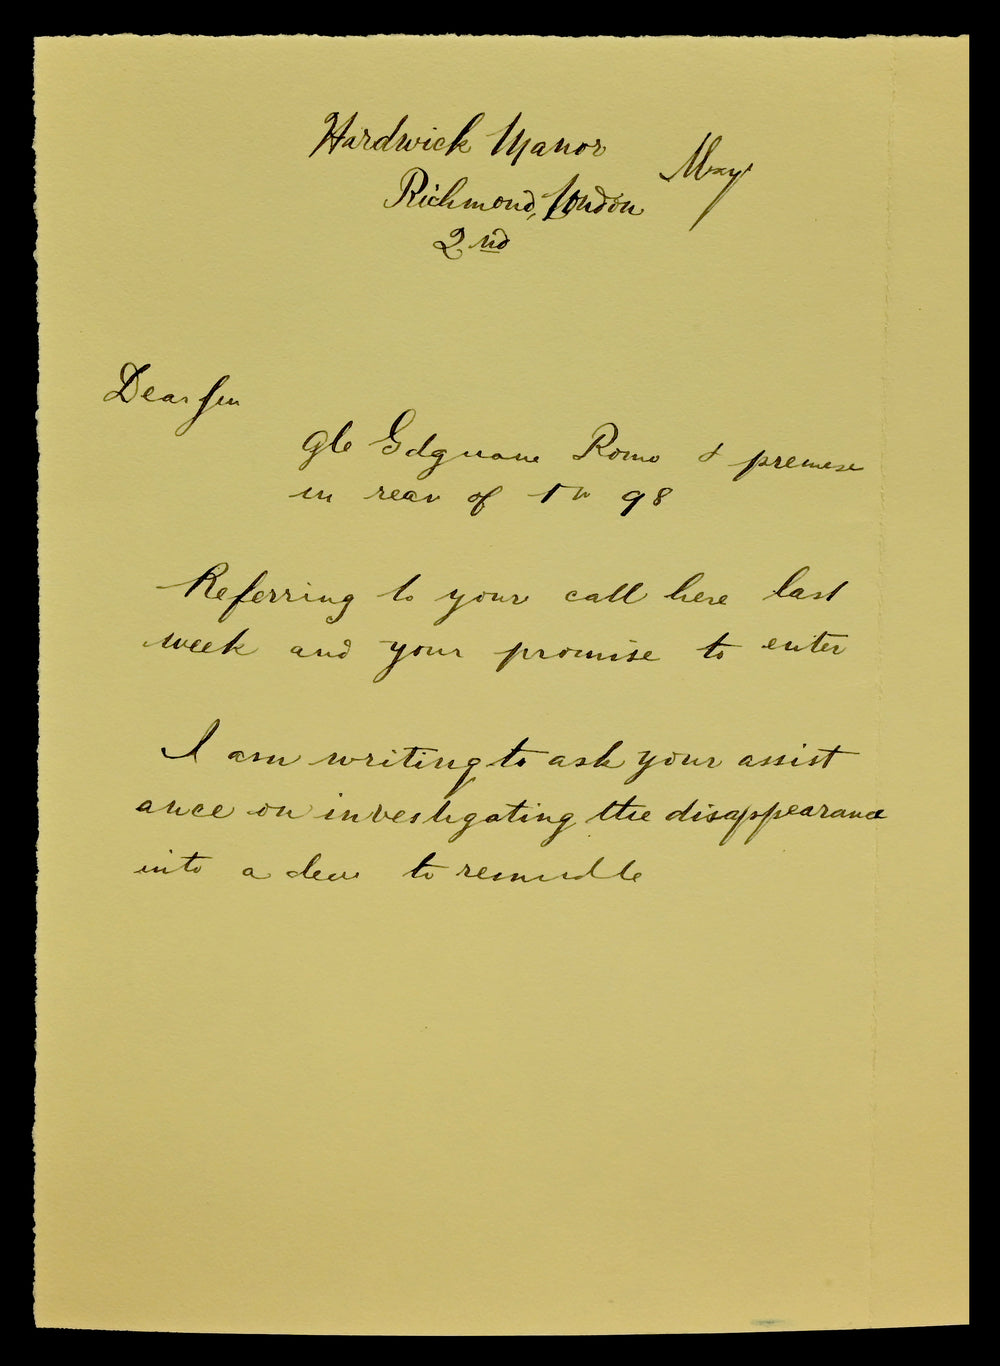 Hardwick Manor
Richmond, London May
2nd
Dear
premise
in rear of 98
Referring to your call here last
week and your promise to enter
I am writing to ask your assist
ance on investigating the disappearance
into a to